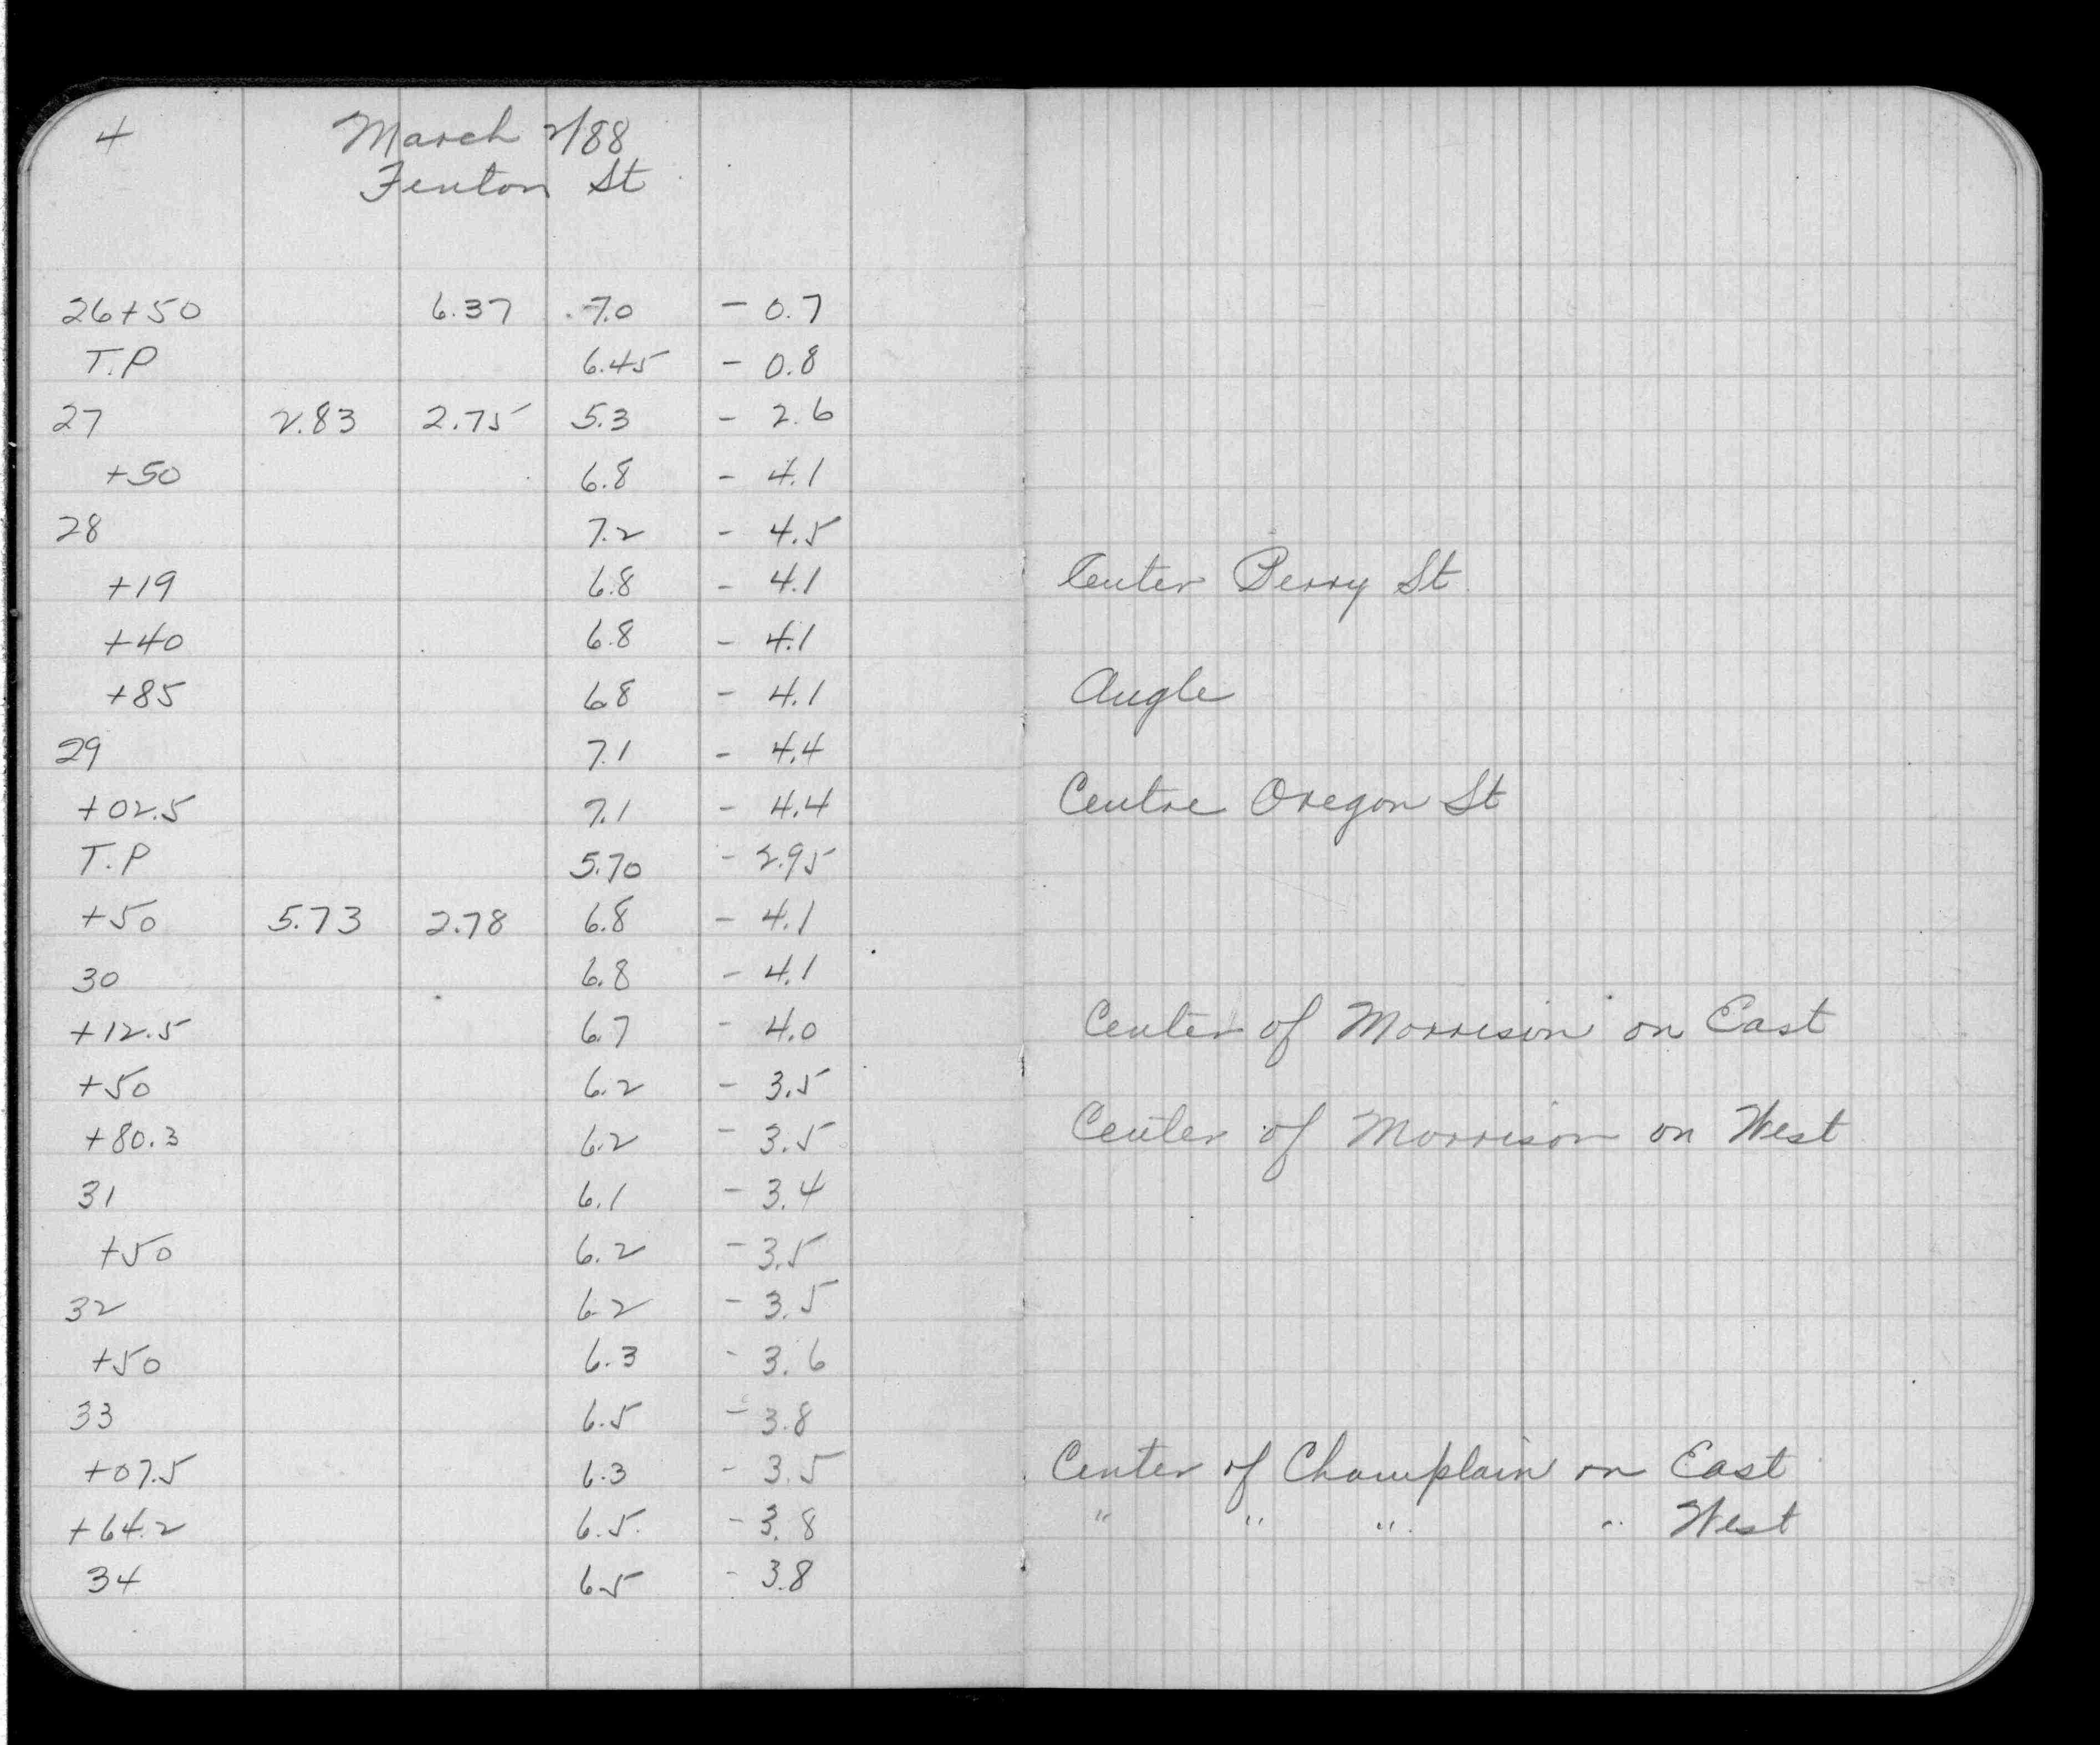 4 March 2/88
Fenton St
26+50 6.37 7.0 - 0.7
T.P 6.45 - 0.8
27 2.83 2.75 5.3 - 2.6
+50 6.8 - 4.1
28 7.2 - 4.5
+19 6.8 - 4.1 Center Perry St
+40 6.8 - 4.1
+85 6.8 - 4.1 Angle
29 7.1 - 4.4
+02.5 7.1 - 4.4 Centre Oregon St
T.P 5.70 - 2.95
+50 5.73 2.78 6.8 - 4.1
30 6.8 - 4.1
+12.5 6.7 - 4.0 Center of Morrison on East
+50 6.2 - 3.5
+80.3 6.2 - 3.5 Center of Morrison on West
31 6.1 - 3.4
+50 6.2 - 3.5
32 6.2 - 3.5
+50 6.3 - 3.6
33 6.5 - 3.8
+07.5 6.3 - 3.5 Center of Champlain on East
+64.2 6.5 - 3.8 " " " " West
34 6.5 - 3.8